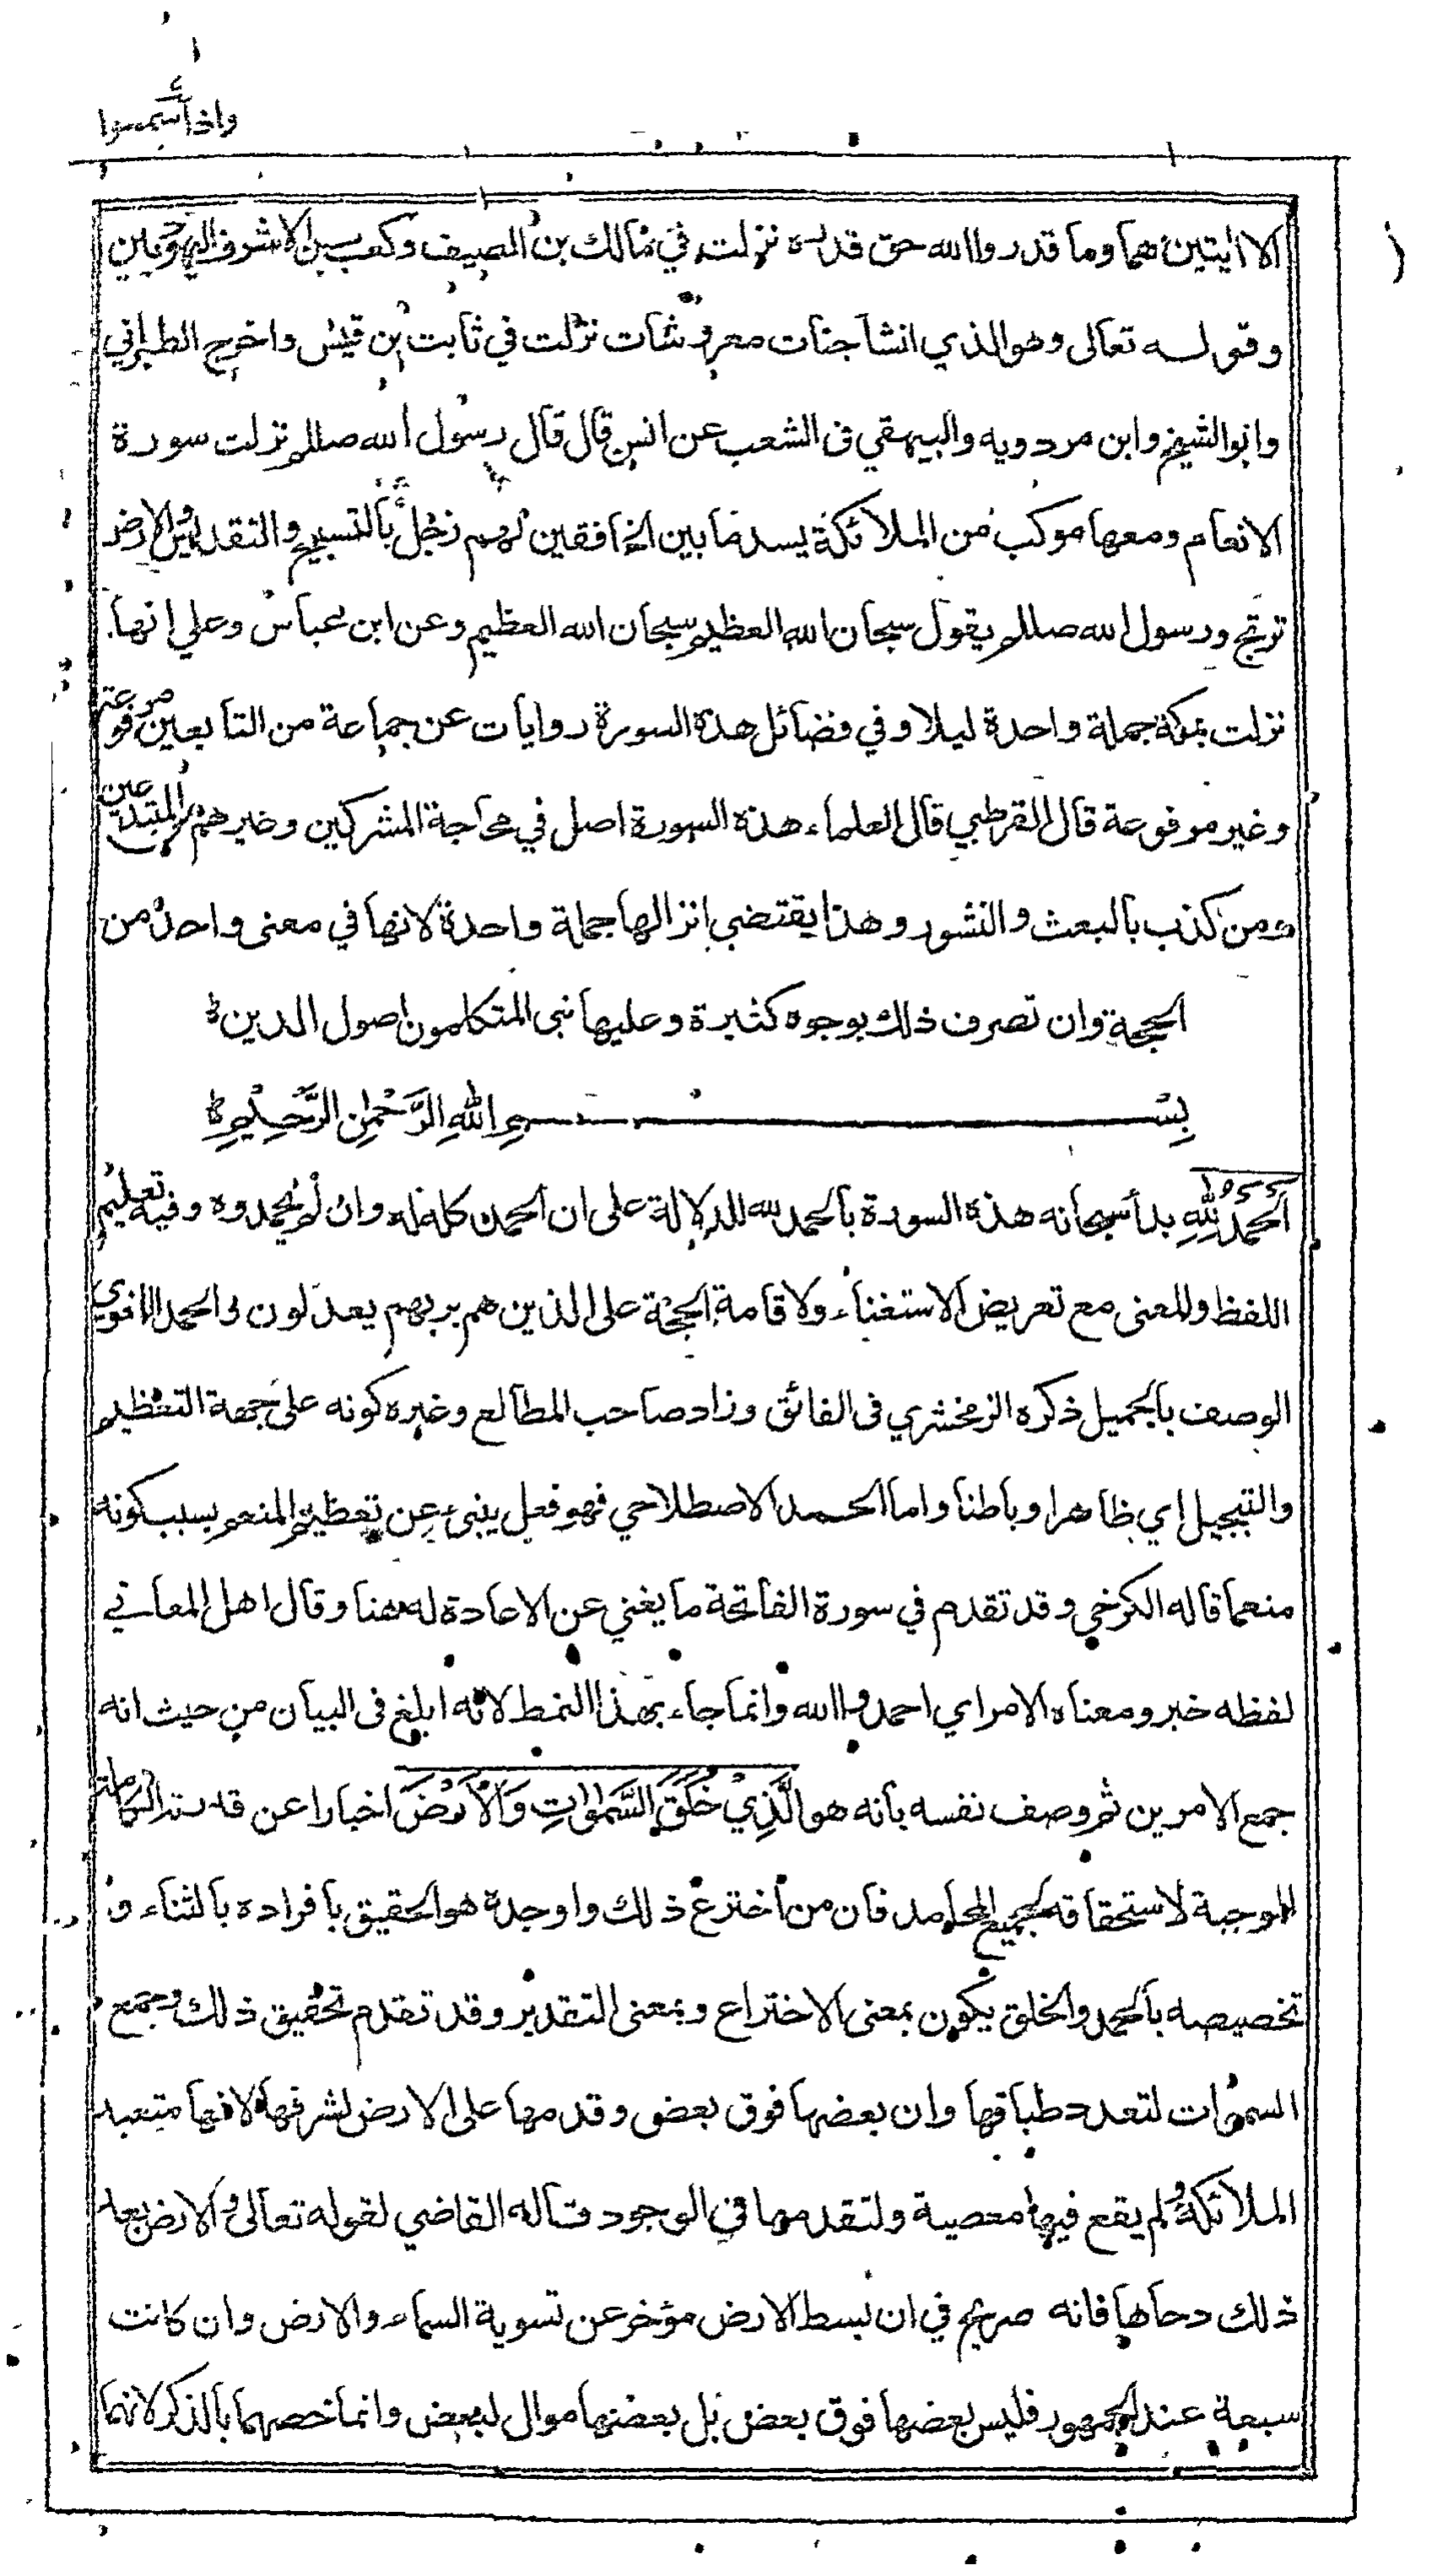 واذا سمعوا
الا ايتين هما وما قدروا الله حق قدره نزلت في مالك بن الصيف وكعب بن الاشرف اليهوديين
وقوله تعالى وهو الذي انشأ جنات معروشات نزلت في ثابت بن قيس واخرج الطبراني
وابوالشيخ وابن مردويه والبيهقي في الشعب عن انس قال قال رسول الله صللم نزلت سورة
الانعام ومعها موكب من الملائكة يسد ما بين الخافقين لهم زجل بالتسبيح والتقديس والارض
ترتج ورسول الله صللم يقول سبحان الله العظيم سبحان الله العظيم وعن ابن عباس وعلي انها
نزلت بمكة جملة واحدة ليلا وفي فضائل هذه السورة روايات عن جماعة من التابعين مرفوعة
وغير موفوعة قال القرطبي قال العلماء هذه السورة اصل في محاجة المشركين وغيرهم من المبتدعين
ومن كذب بالبعث والنشور وهذا يقتضي انزالها جملة واحدة لانها في معنى واحد من
الحجة وان تصرف ذلك بوجوه كثيرة وعليها نبى المتكلمون اصول الدين
بِسْمِ اللهِ الرَّحْمٰنِ الرَّحِيْمِ
اَلْحَمْدُ لِلّٰهِ بدأ سبحانه هذه السورة بالحمد لله للدلالة على ان الحمد كله له وان لم يحمدوه وفيه تعليم
اللفظ والمعنى مع تعريض الاستغناء ولاقامة الحجة على الذين هم بربهم يعدلون والحمد اللغوي
الوصف بالجميل ذكره الزمخشري في الفائق وزاد صاحب المطالع وغيره كونه على جهة التعظيم
والتبجيل اي ظاهرا وباطنا واما الحمد الاصطلاحي فهو فعل ينبئ عن تعظيم المنعم بسبب كونه
منعما قاله الكرخي وقد تقدم في سورة الفاتحة ما يغني عن الاعادة له ههنا وقال اهل المعاني
لفظه خبر ومعناه الامر اي احمدوا الله وانما جاء بهذا النمط لانه ابلغ في البيان من حيث انه
جمع الامرين ثم وصف نفسه بانه هو الَّذِيْ خَلَقَ السَّمٰوٰتِ وَالْاَرْضَ اخبارا عن قدرته الكاملة
الموجبة لاستحقاقه لجميع المحامد فان من اخترع ذلك واوجده هو الحقيق بافراده بالثناء و
تخصيصه بالحمد والخلق يكون بمعنى الاختراع وبمعنى التقدير وقد تقدم تحقيق ذلك وجمع
السموات لتعدد طباقها وان بعضها فوق بعض وقدمها على الارض لشرفها لانها متعبد
الملائكة ولم يقع فيها معصية ولتقدمها في الوجود قاله القاضي لقوله تعالى والارض بعد
ذلك دحاها فانه صريح في ان بسط الارض مؤخر عن تسوية السماء والارض وان كانت
سبعة عند الجمهور فليس بعضها فوق بعض بل بعضها موال لبعض وانما خصهما بالذكر لانهما